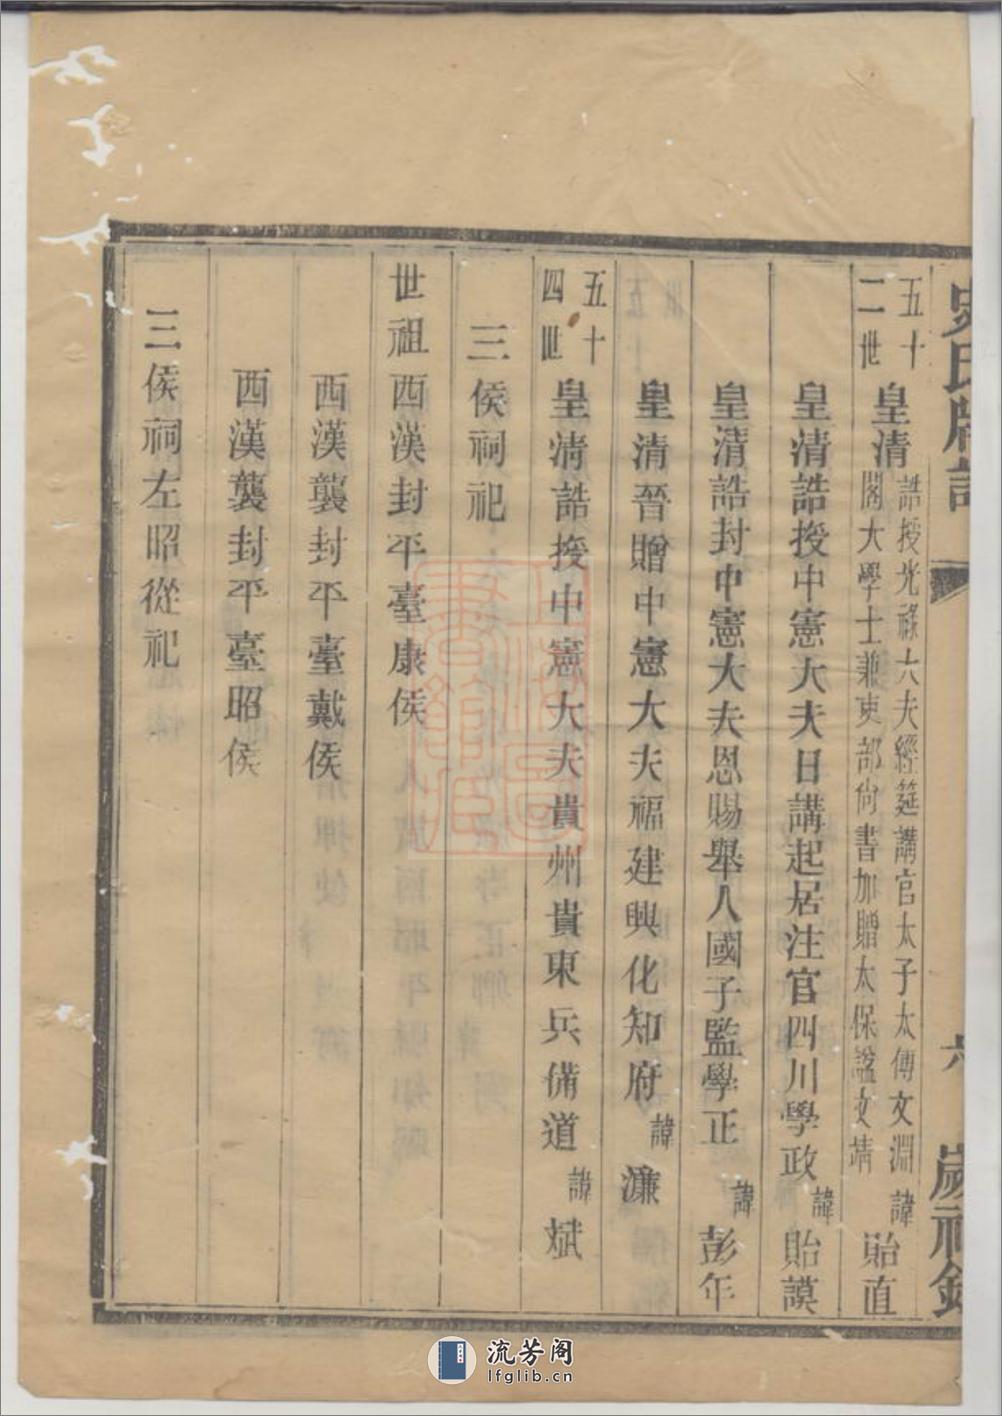 史氏牒譜
六
歲祀錄
五十二世
皇清
誥授光祿大夫經筵講官太子太傅文淵
閣大學士兼吏部尙書加贈太保諡文靖
諱貽直
皇清誥授中憲大夫日講起居注官四川學政諱貽謨
皇清誥封中憲大夫恩賜舉人國子監學正諱彭年
皇清晉贈中憲大夫福建興化知府諱濂
五十四世
皇清誥授中憲大夫貴州貴東兵備道諱斌
三侯祠祀
世祖西漢封平臺康侯
西漢襲封平臺戴侯
西漢襲封平臺昭侯
三侯祠左昭從祀
流芳阁
lfglib.cn